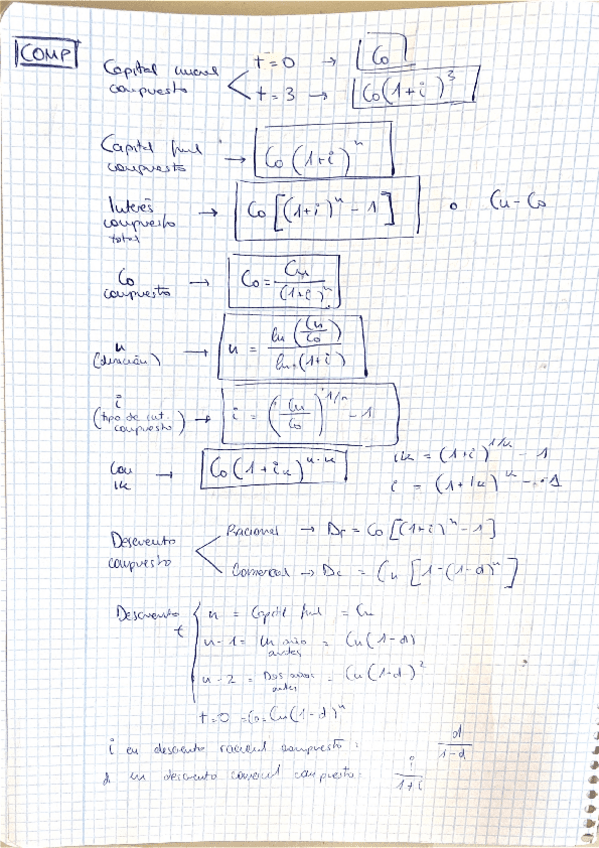 COMP
Capital inicial compuesto
t = 0 → Co
t = 3 → Co(1+i)^3
Capital final compuesto → Co(1+i)^n
Interés compuesto total → Co[(1+i)^n - 1] o Cn - Co
Co compuesto → Co = Cn/(1+i)^n
n (duración) → n = ln(Cn/Co)/ln(1+i)
i (tipo de int. compuesto) → i = (Cn/Co)^1/n - 1
Con ik → Co(1+ik)^n·k
ik = (1+i)^1/k - 1
i = (1+ik)^k - 1
Descuento compuesto
Racional → Dr = Co[(1+i)^n - 1]
Comercial → Dc = Cn[1-(1-d)^n]
Descuento t
n = Capital final = Cn
n - 1 = Un año antes = Cn(1-d)
n - 2 = Dos años antes = Cn(1-d)^2
t = 0 = Co = Cn(1-d)^n
i en descuento racional compuesto: d/1-d
d en descuento comercial compuesto: i/1+i